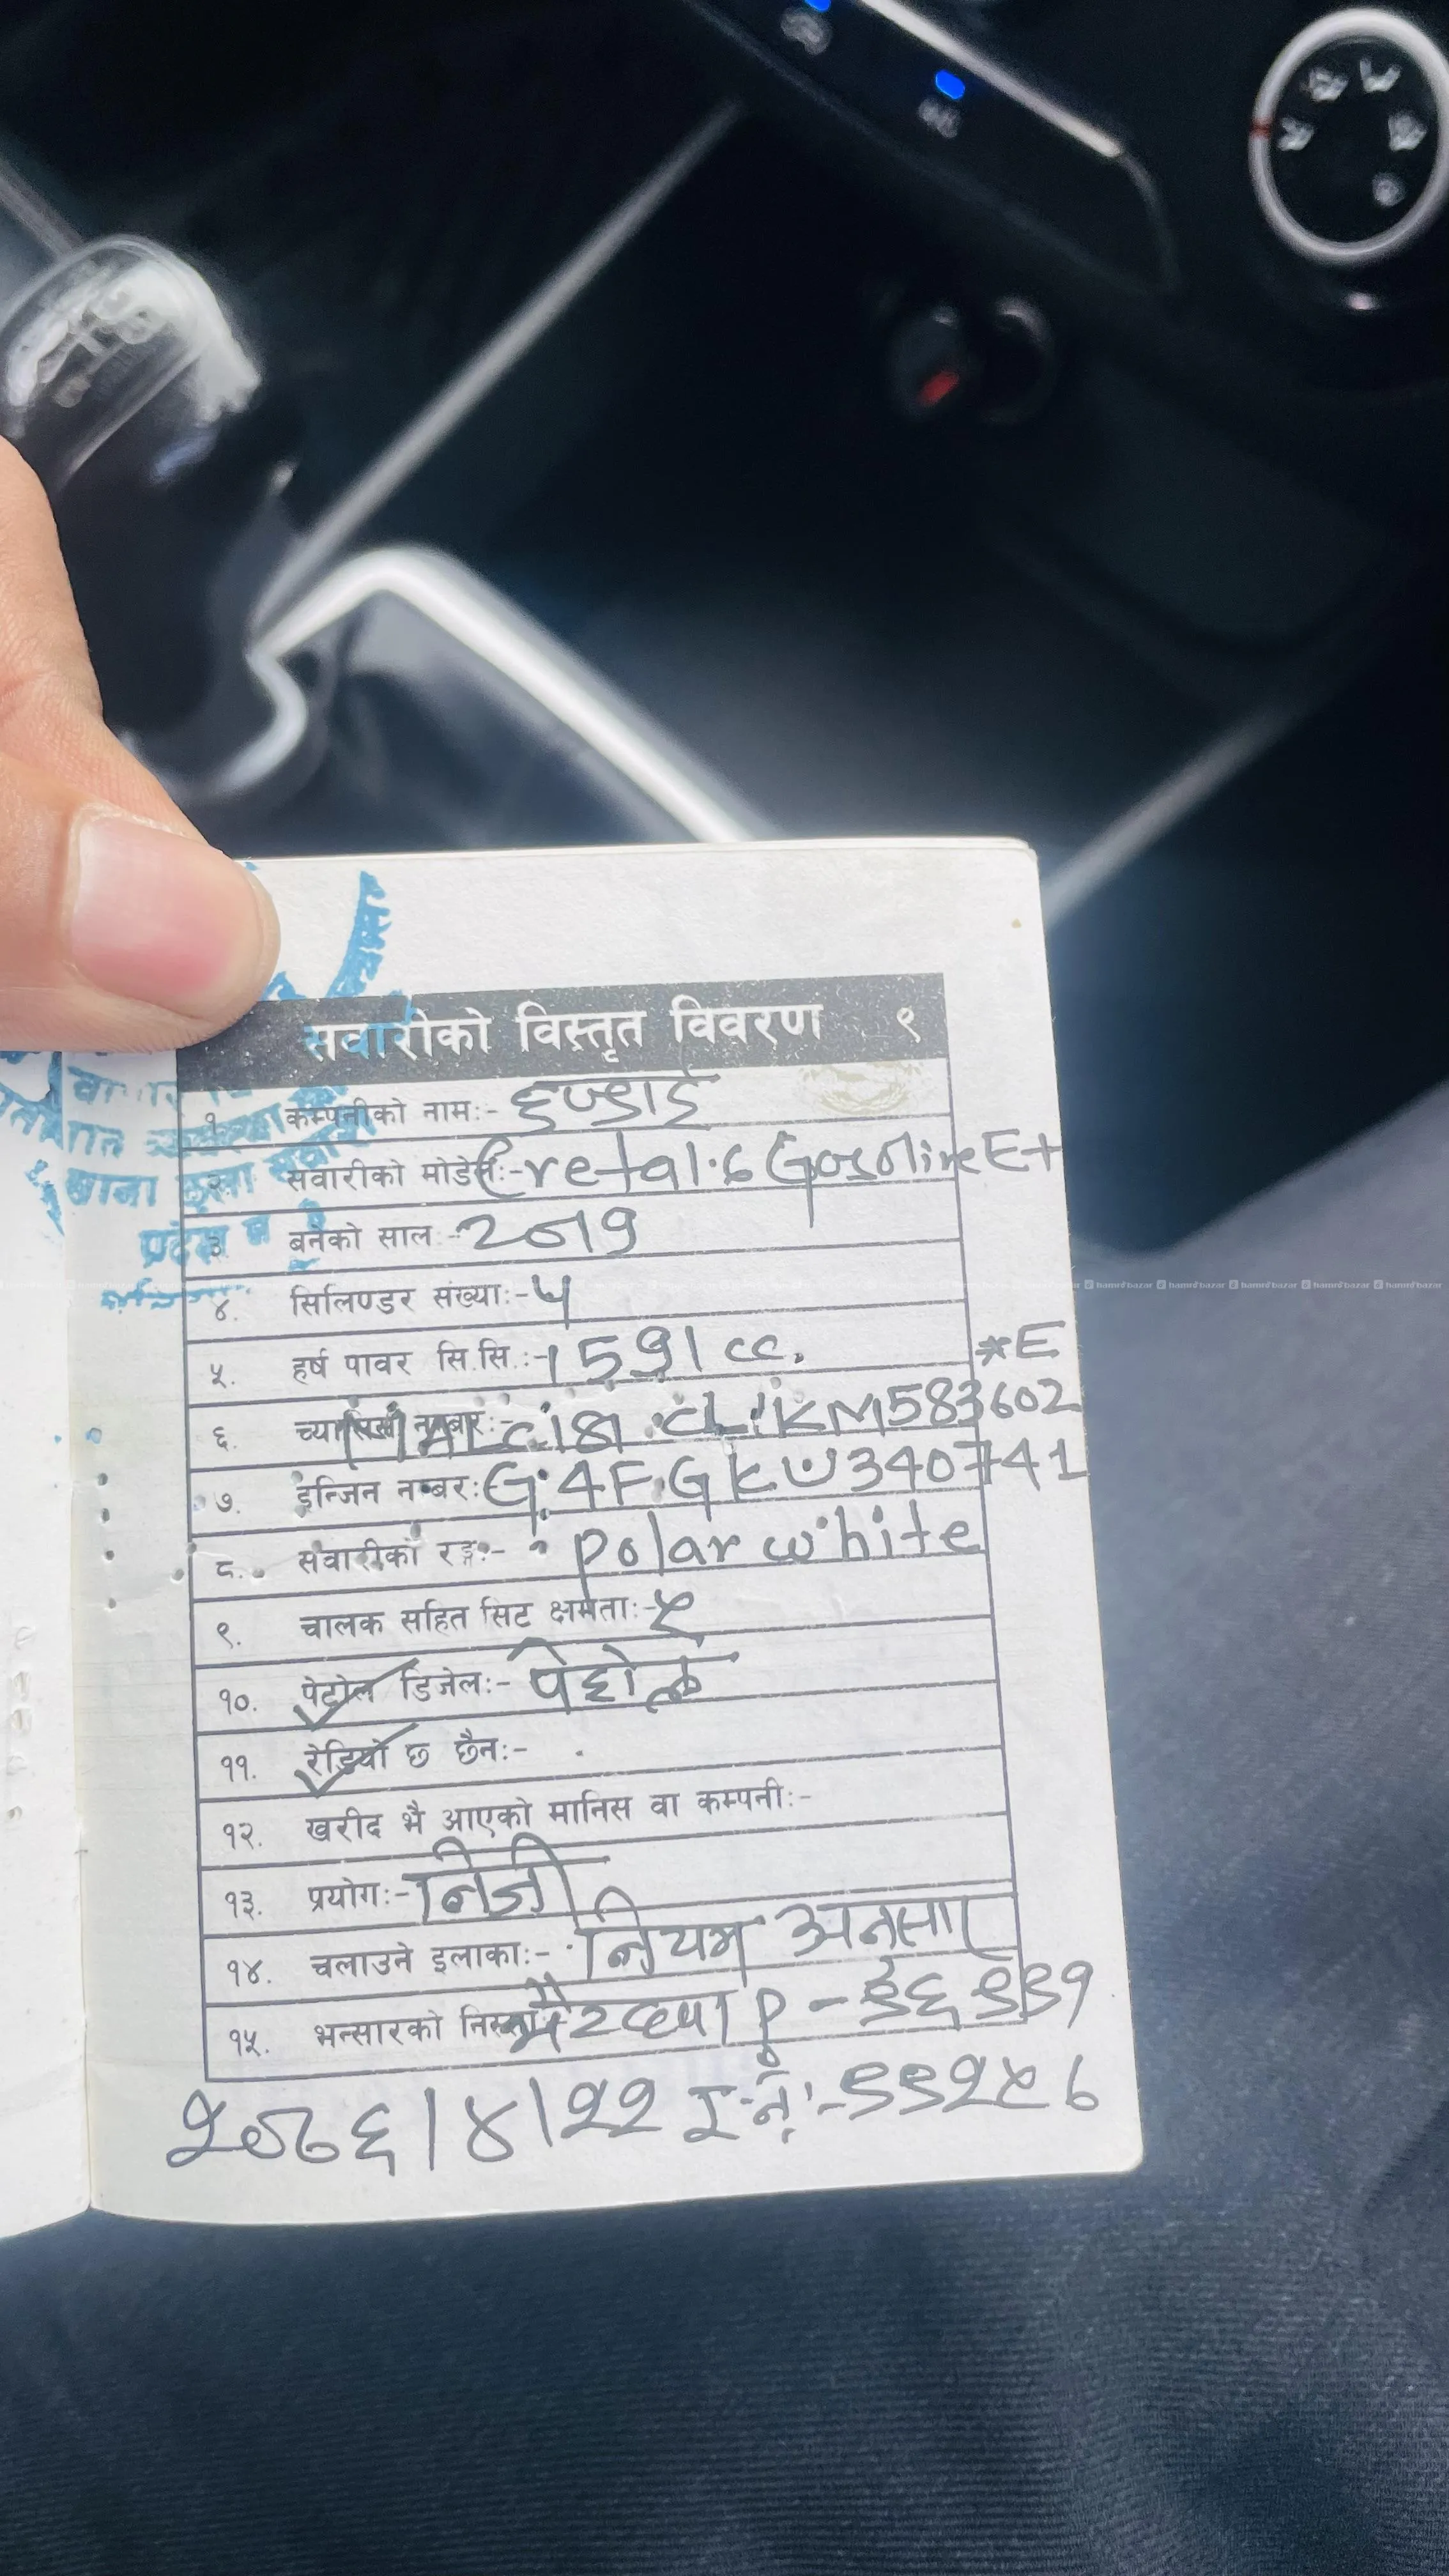 सवारीको विस्तृत विवरण ९
१. कम्पनीको नाम:- हुण्डाई
२. सवारीको मोडेल:- Creta 1.6 Gasoline E+
३. बनेको साल:- 2019
४. सिलिण्डर संख्या:- ४
hamrobazar hamrobazar hamrobazar hamrobazar hamrobazar
५. हर्ष पावर सि.सि.:- 1591 cc.
*E
६. च्यासिस नम्बर:- CLKM583602
७. इन्जिन नम्बर: G4FGKW340741
८. सवारीको रङ्ग:- Polar white
९. चालक सहित सिट क्षमता:- ५
१०. पेट्रोल डिजेल:- पेट्रोल
११. रेडियो छ छैन:-
१२. खरीद भै आएको मानिस वा कम्पनी:-
१३. प्रयोग:- निजी
१४. चलाउने इलाका:- नियम अनुसार
१५. भन्सारको निस्सा
२०७६/४/२२
प्रदेश